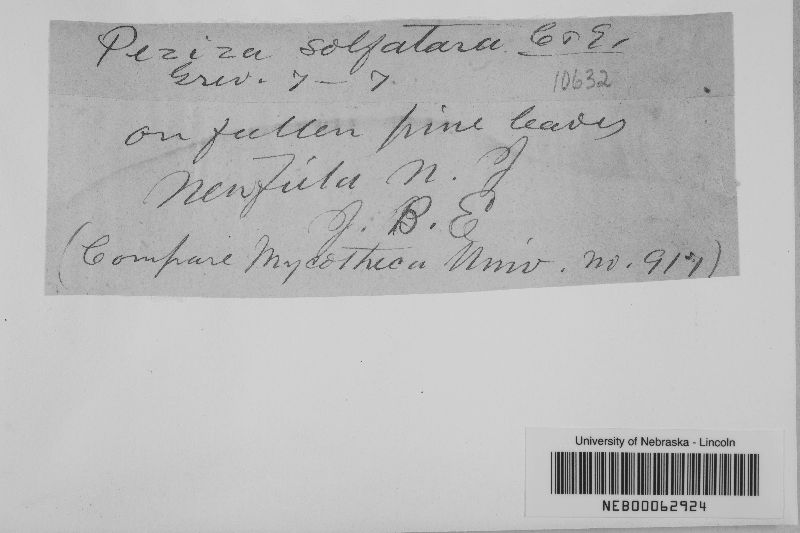 Peziza solfatara C & E.
Grev. 7 - 7. 10632
on fallen pine leaves
Newfield N. J
J. B. E
(Compare Mycotheca Univ. no. 917)
University of Nebraska - Lincoln
NEB00062924